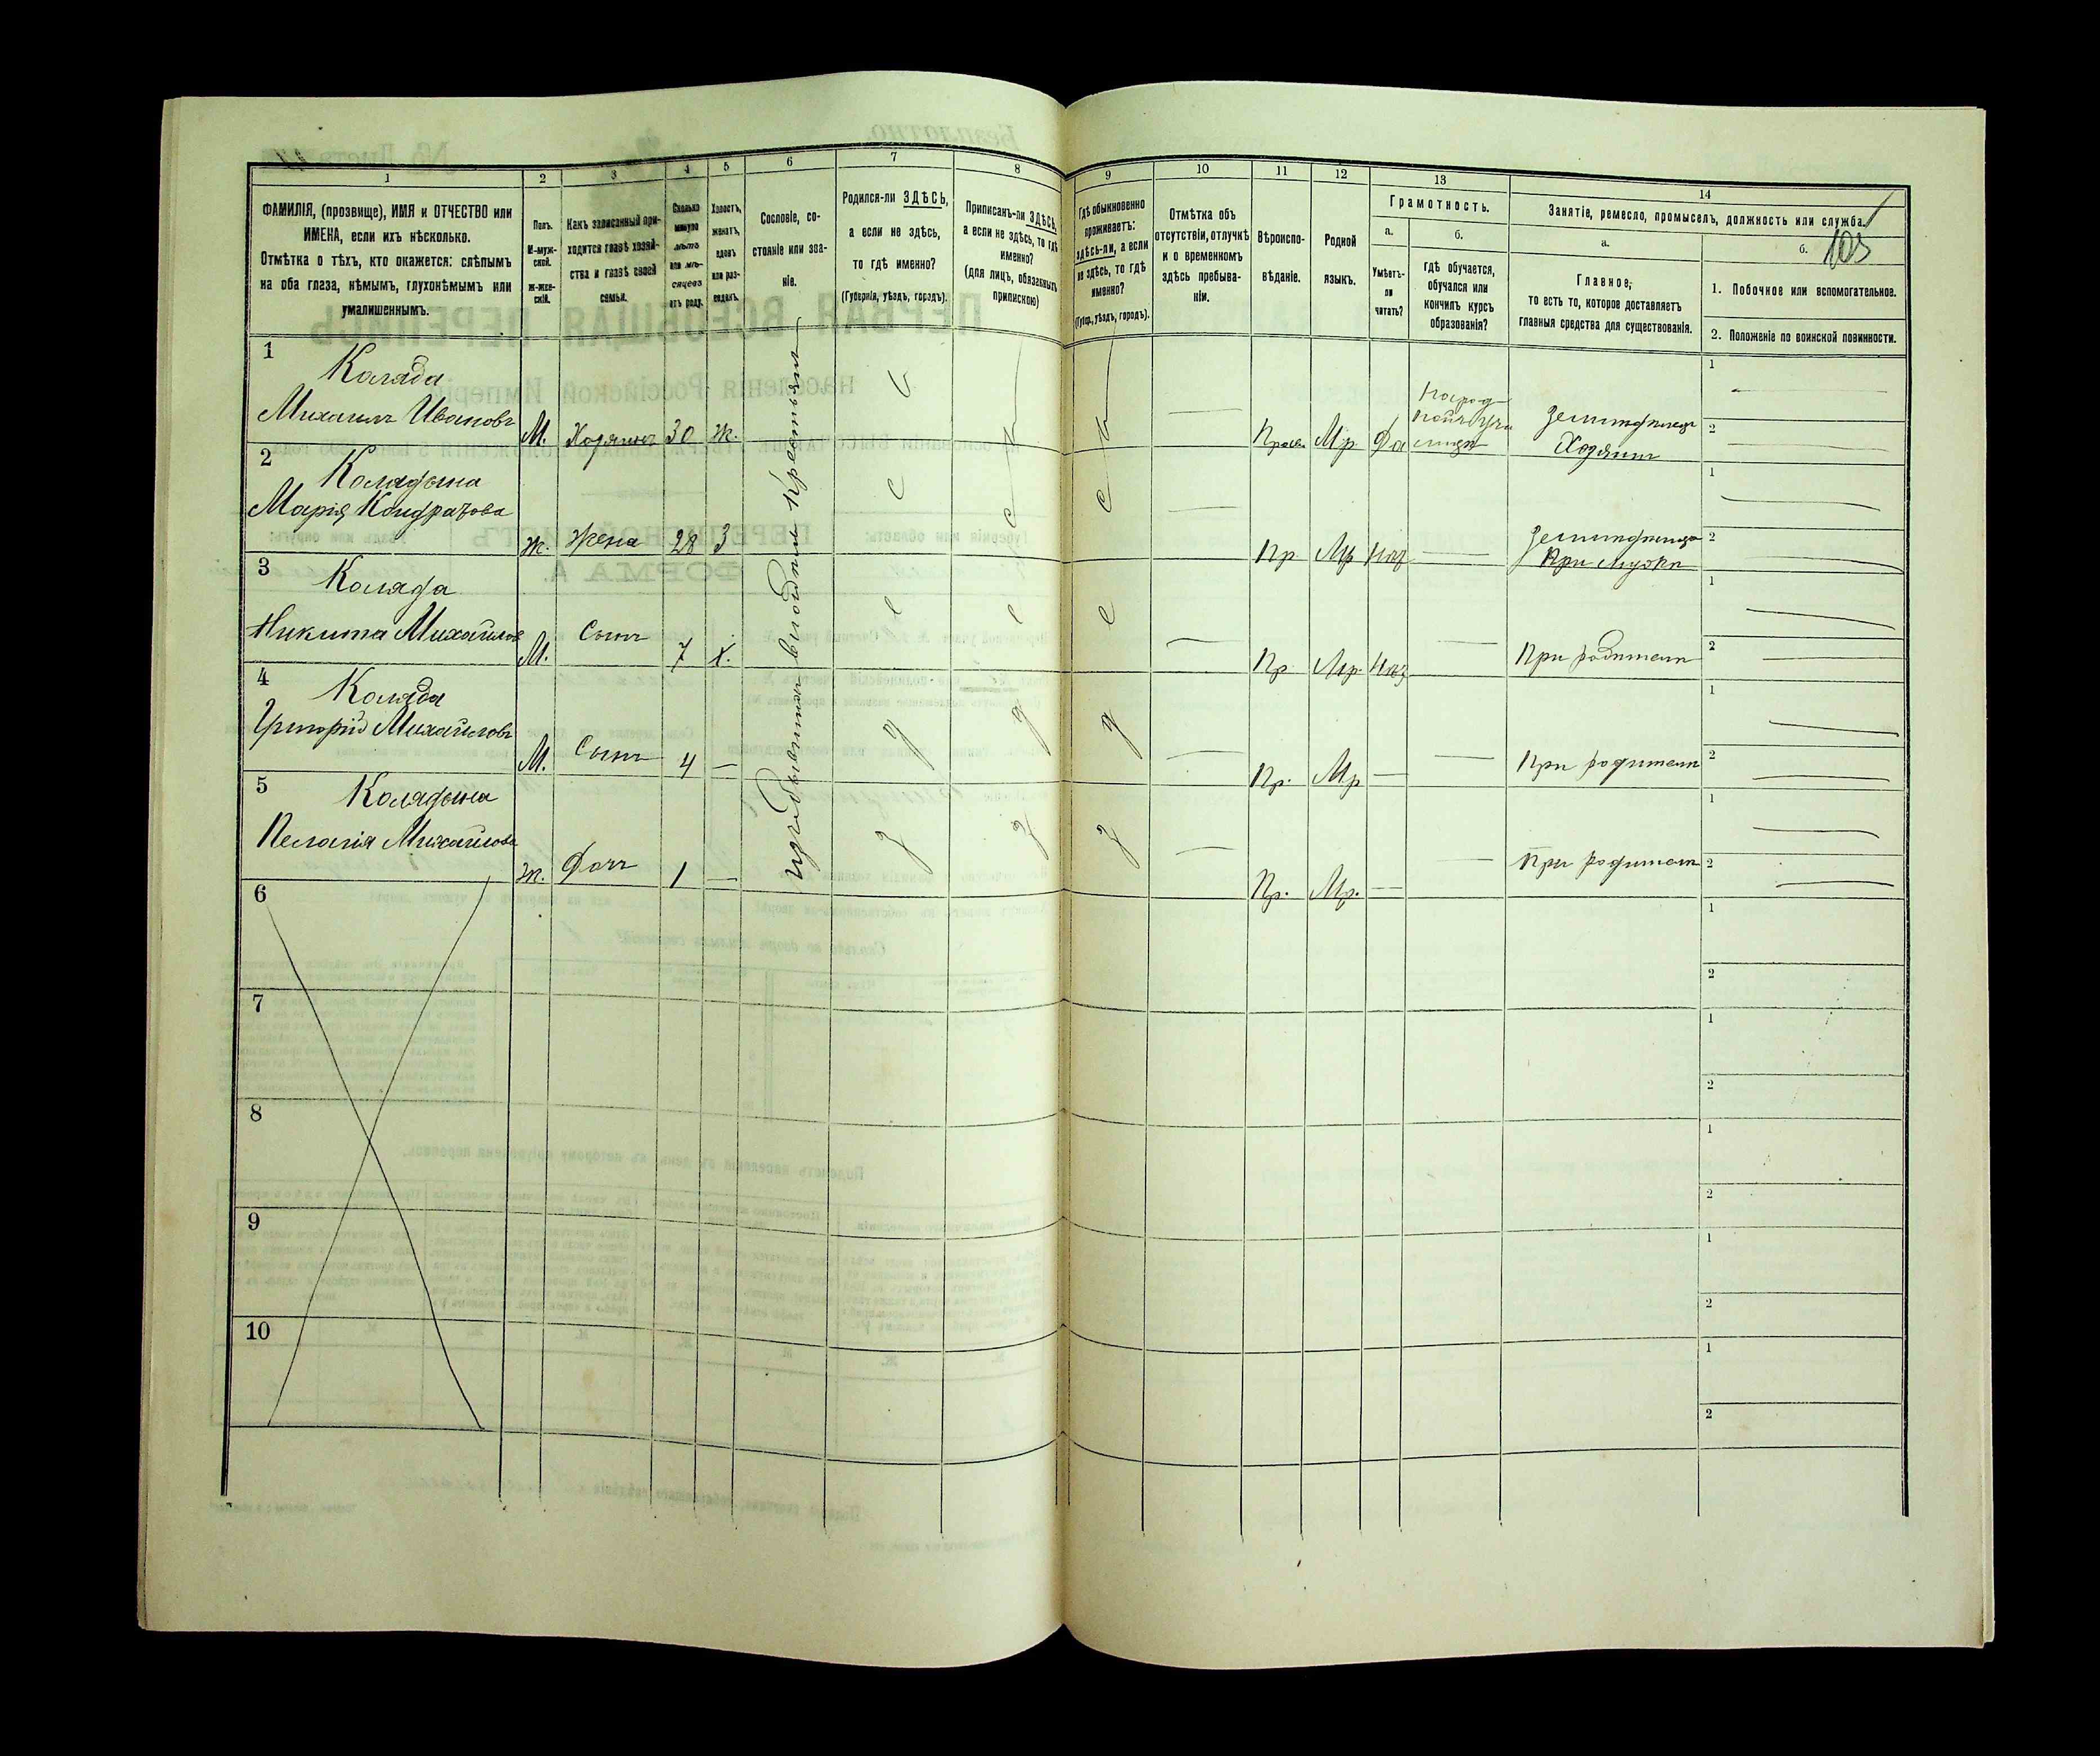 1
2
3
4
5
6
7
8
9
10
11
12
13
14
ФАМИЛІЯ, (прозвище), ИМЯ и ОТЧЕСТВО или
ИМЕНА, если ихъ нѣсколько.
Отмѣтка о тѣхъ, кто окажется: слѣпымъ
на оба глаза, нѣмымъ, глухонѣмымъ или
умалишеннымъ.
Полъ.
М-муж-
ской.
Ж-жен-
скій.
Какъ записанный при-
ходится главѣ хозяй-
ства и главѣ своей
семьи.
Сколько
минуло
лѣтъ
или мѣ-
сяцевъ
отъ роду.
Холостъ,
женатъ,
вдовъ
или раз-
веденъ.
Сословіе, со-
стояніе или зва-
ніе.
Родился-ли ЗДѢСЬ,
а если не здѣсь,
то гдѣ именно?
(Губернія, уѣздъ, городъ).
Приписанъ-ли ЗДѢСЬ,
а если не здѣсь, то гдѣ
именно?
(для лицъ, обязанныхъ
припискою)
Гдѣ обыкновенно
проживаетъ:
здѣсь-ли, а если
не здѣсь, то гдѣ
именно?
(Губер., уѣздъ, городъ).
Отмѣтка объ
отсутствіи, отлучкѣ
и о временномъ
здѣсь пребыва-
ніи.
Вѣроиспо-
вѣданіе.
Родной
языкъ.
Грамотность.
а.
б.
Умѣетъ-
ли
читать?
гдѣ обучается,
обучался или
кончилъ курсъ
образованія?
Занятіе, ремесло, промыселъ, должность или служба.
103
а.
б.
Главное,
то есть то, которое доставляетъ
главныя средства для существованія.
1. Побочное или вспомогательное.
2. Положеніе по воинской повинности.
1
Коляда
Михаилъ Ивановъ
М.
Хозяинъ
30
Ж.
Правл.
Мр.
Да
Земледѣлецъ
Хозяинъ
1
2
2
Колядына
Марія Кондратова
Ж.
Жена
28
З
Пр.
Мр.
Земледѣлецъ
При мужѣ
1
2
3
Коляда
Никита Михайловъ
М.
Сынъ
7
Х.
Пр.
Мр.
При родителѣ
1
2
4
Коляда
Григорій Михайловъ
М.
Сынъ
4
Пр.
Мр
При родителѣ
1
2
5
Колядына
Пелагія Михайлова
Ж.
Дочь
1
Пр.
Мр.
При родителѣ
1
2
6
1
2
7
1
2
8
1
2
9
1
2
10
1
2